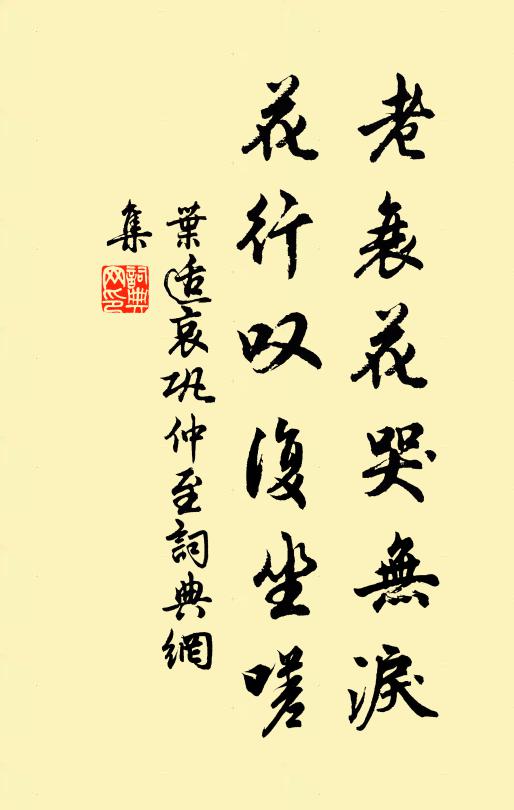 老衰花哭無淚
花行叹復坐嗟
葉适哀巩仲至詞典網
集
詞典
网印